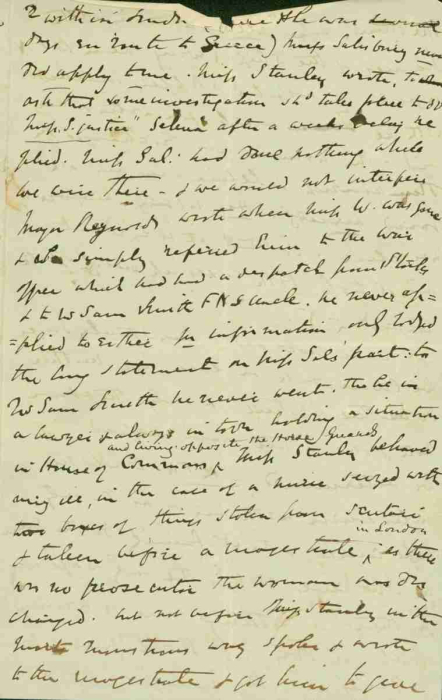 days en route to Greece) Miss Salisbury never
did apply to me. Miss Stanley wrote, to
ask that some investigation shd take place to do
"Miss S. justice" Selina after a weeks delay re
plied. Miss Sal: had done nothing while
we were there - & we would not interfere
Major Reynolds wrote when Miss W. was gone
& simply referred him to the War
Office which had had a despatch from Storks
& to Wm Sam Smith FNs Uncle. he never ap=
=plied to either for information only
the long statement on Miss Sals' part: to
Wm Sam Smith he never went. tho he is
a lawyer & always in town holding a situation
and living opposite the Horse Guards
in House of Commons, Miss Stanley behaved
very ill, in the case of a nurse seized with
two boxes of things stolen from Scutari
in London
& taken before a magistrate, as there
was no prosecutor the woman was dis
charged. but not before Miss Stanley in the
most monstrous way spoke & wrote
to the magistrate & got him to give